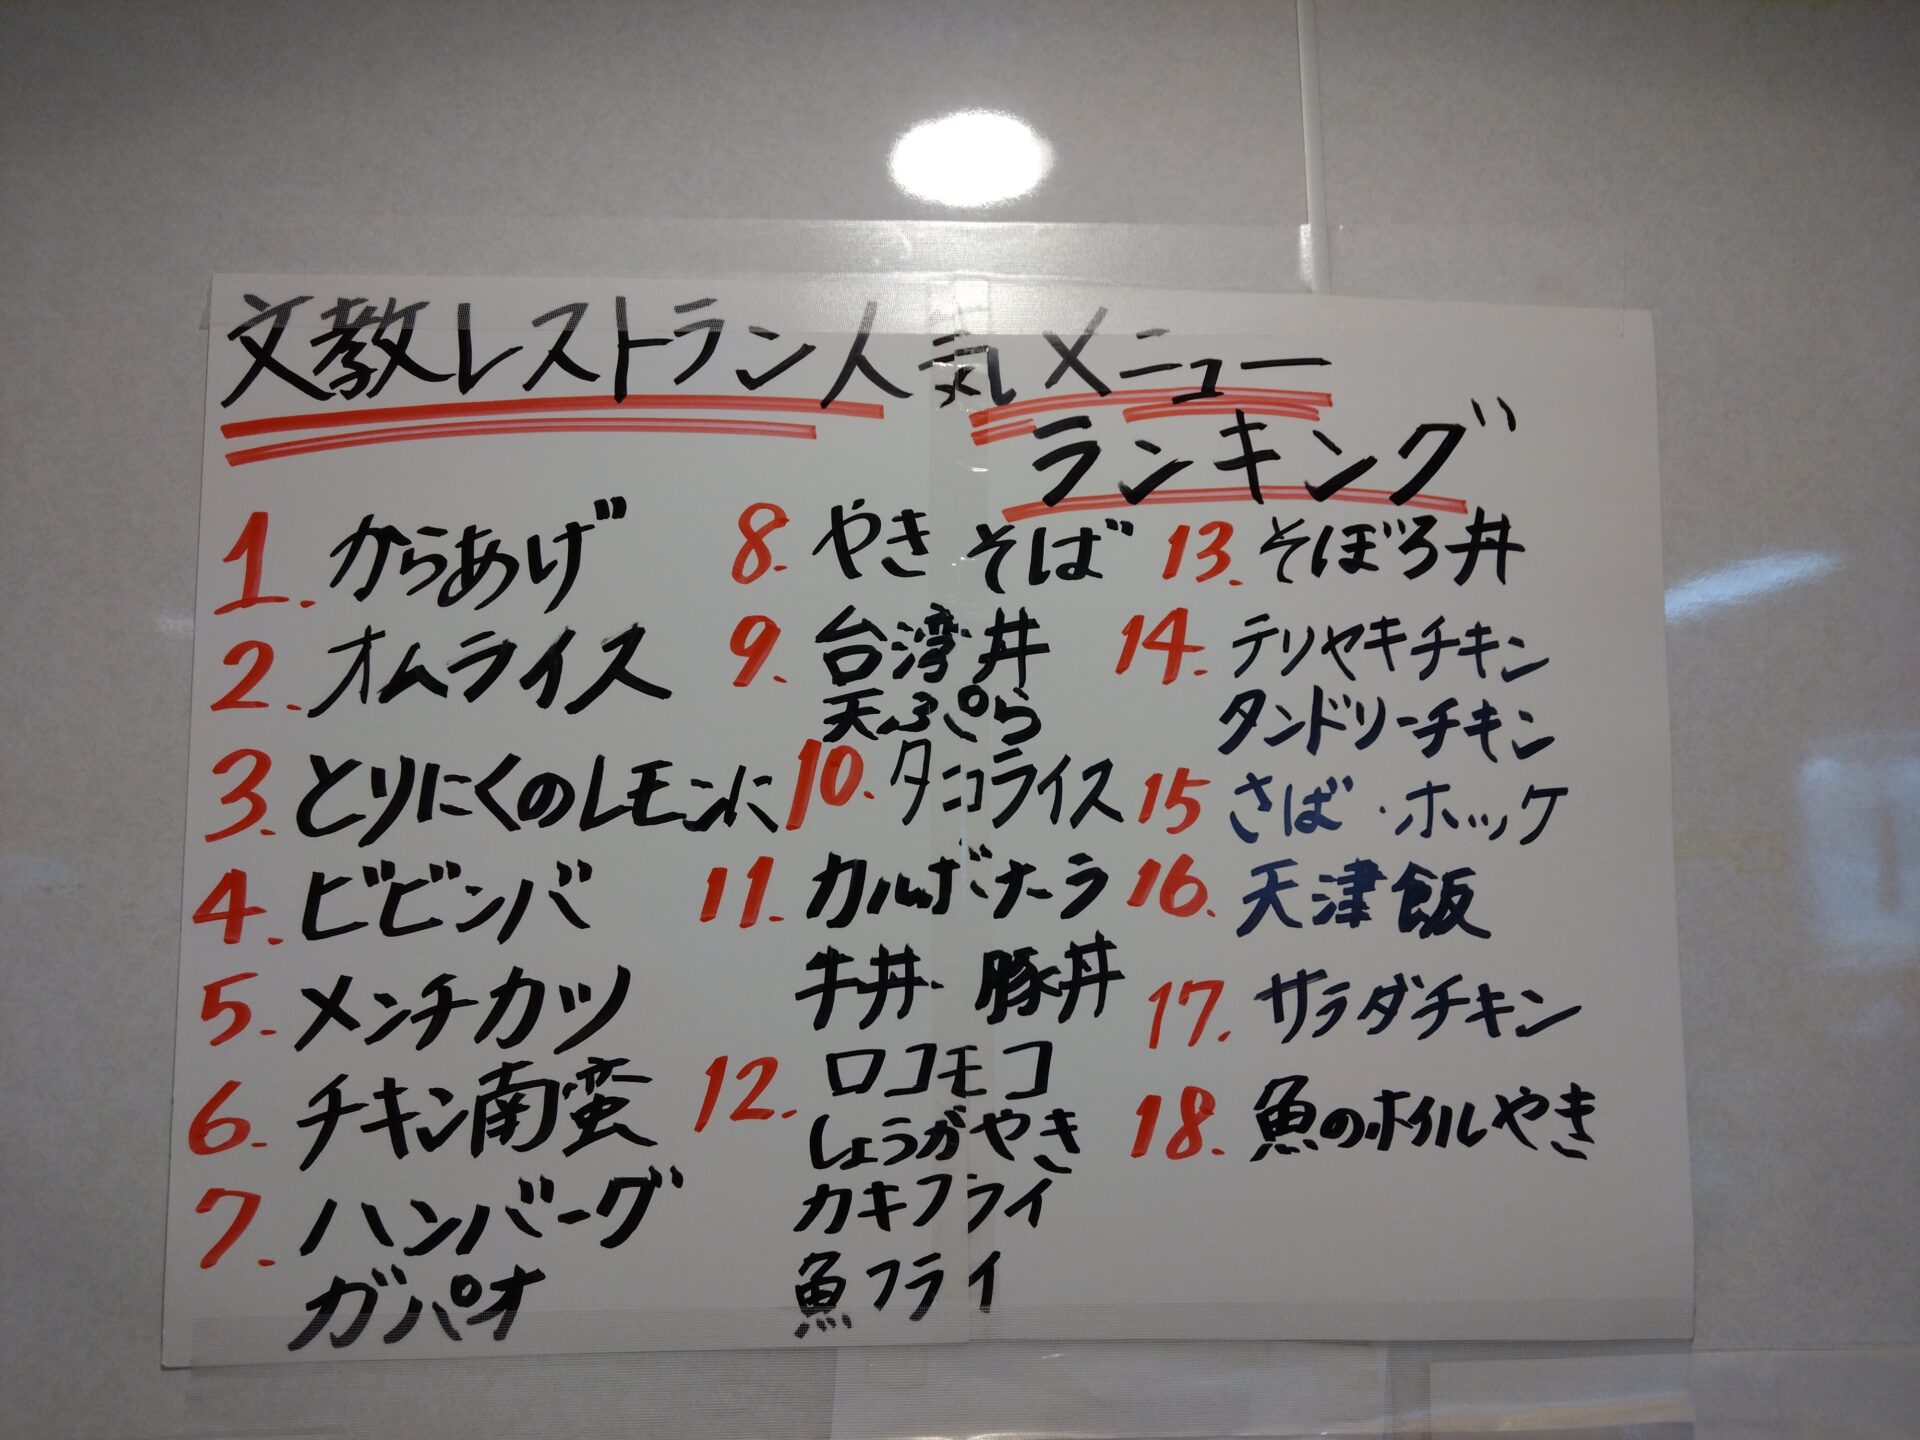 文教レストラン人気メニュー
ランキング
1. からあげ
2. オムライス
3. とりにくのレモンに
4. ビビンバ
5. メンチカツ
6. チキン南蛮
7. ハンバーグ
ガパオ
8. やきそば
9. 台湾丼
天ぷら
10. タコライス
11. カルボナーラ
牛丼 豚丼
12. ロコモコ
しょうがやき
カキフライ
魚フライ
13. そぼろ丼
14. テリヤキチキン
タンドリーチキン
15 さば・ホッケ
16. 天津飯
17. サラダチキン
18. 魚のホイルやき